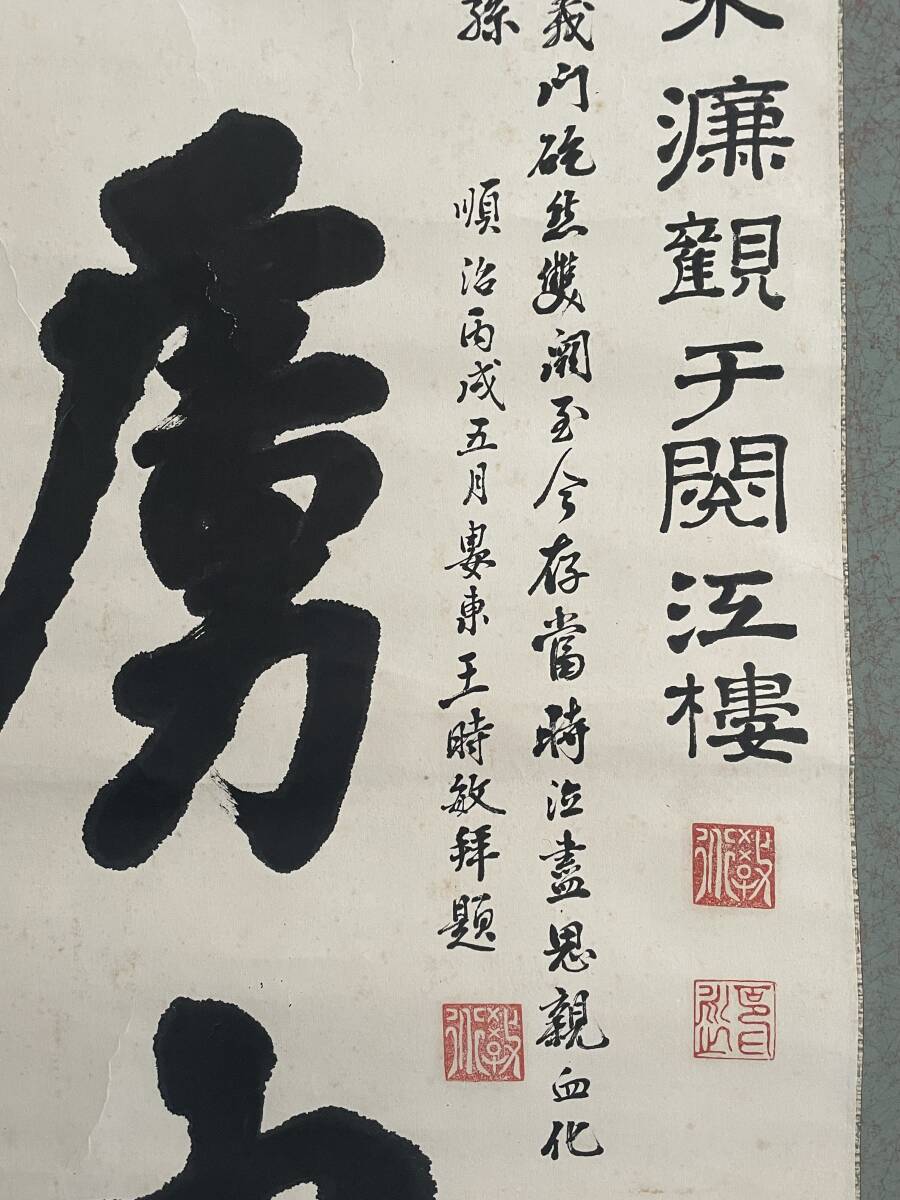 宋濂觀于閱江樓
義門矻然雙闕至今存當時泣盡思親血化
孫
順治丙戌五月婁東王時敏拜題
虜